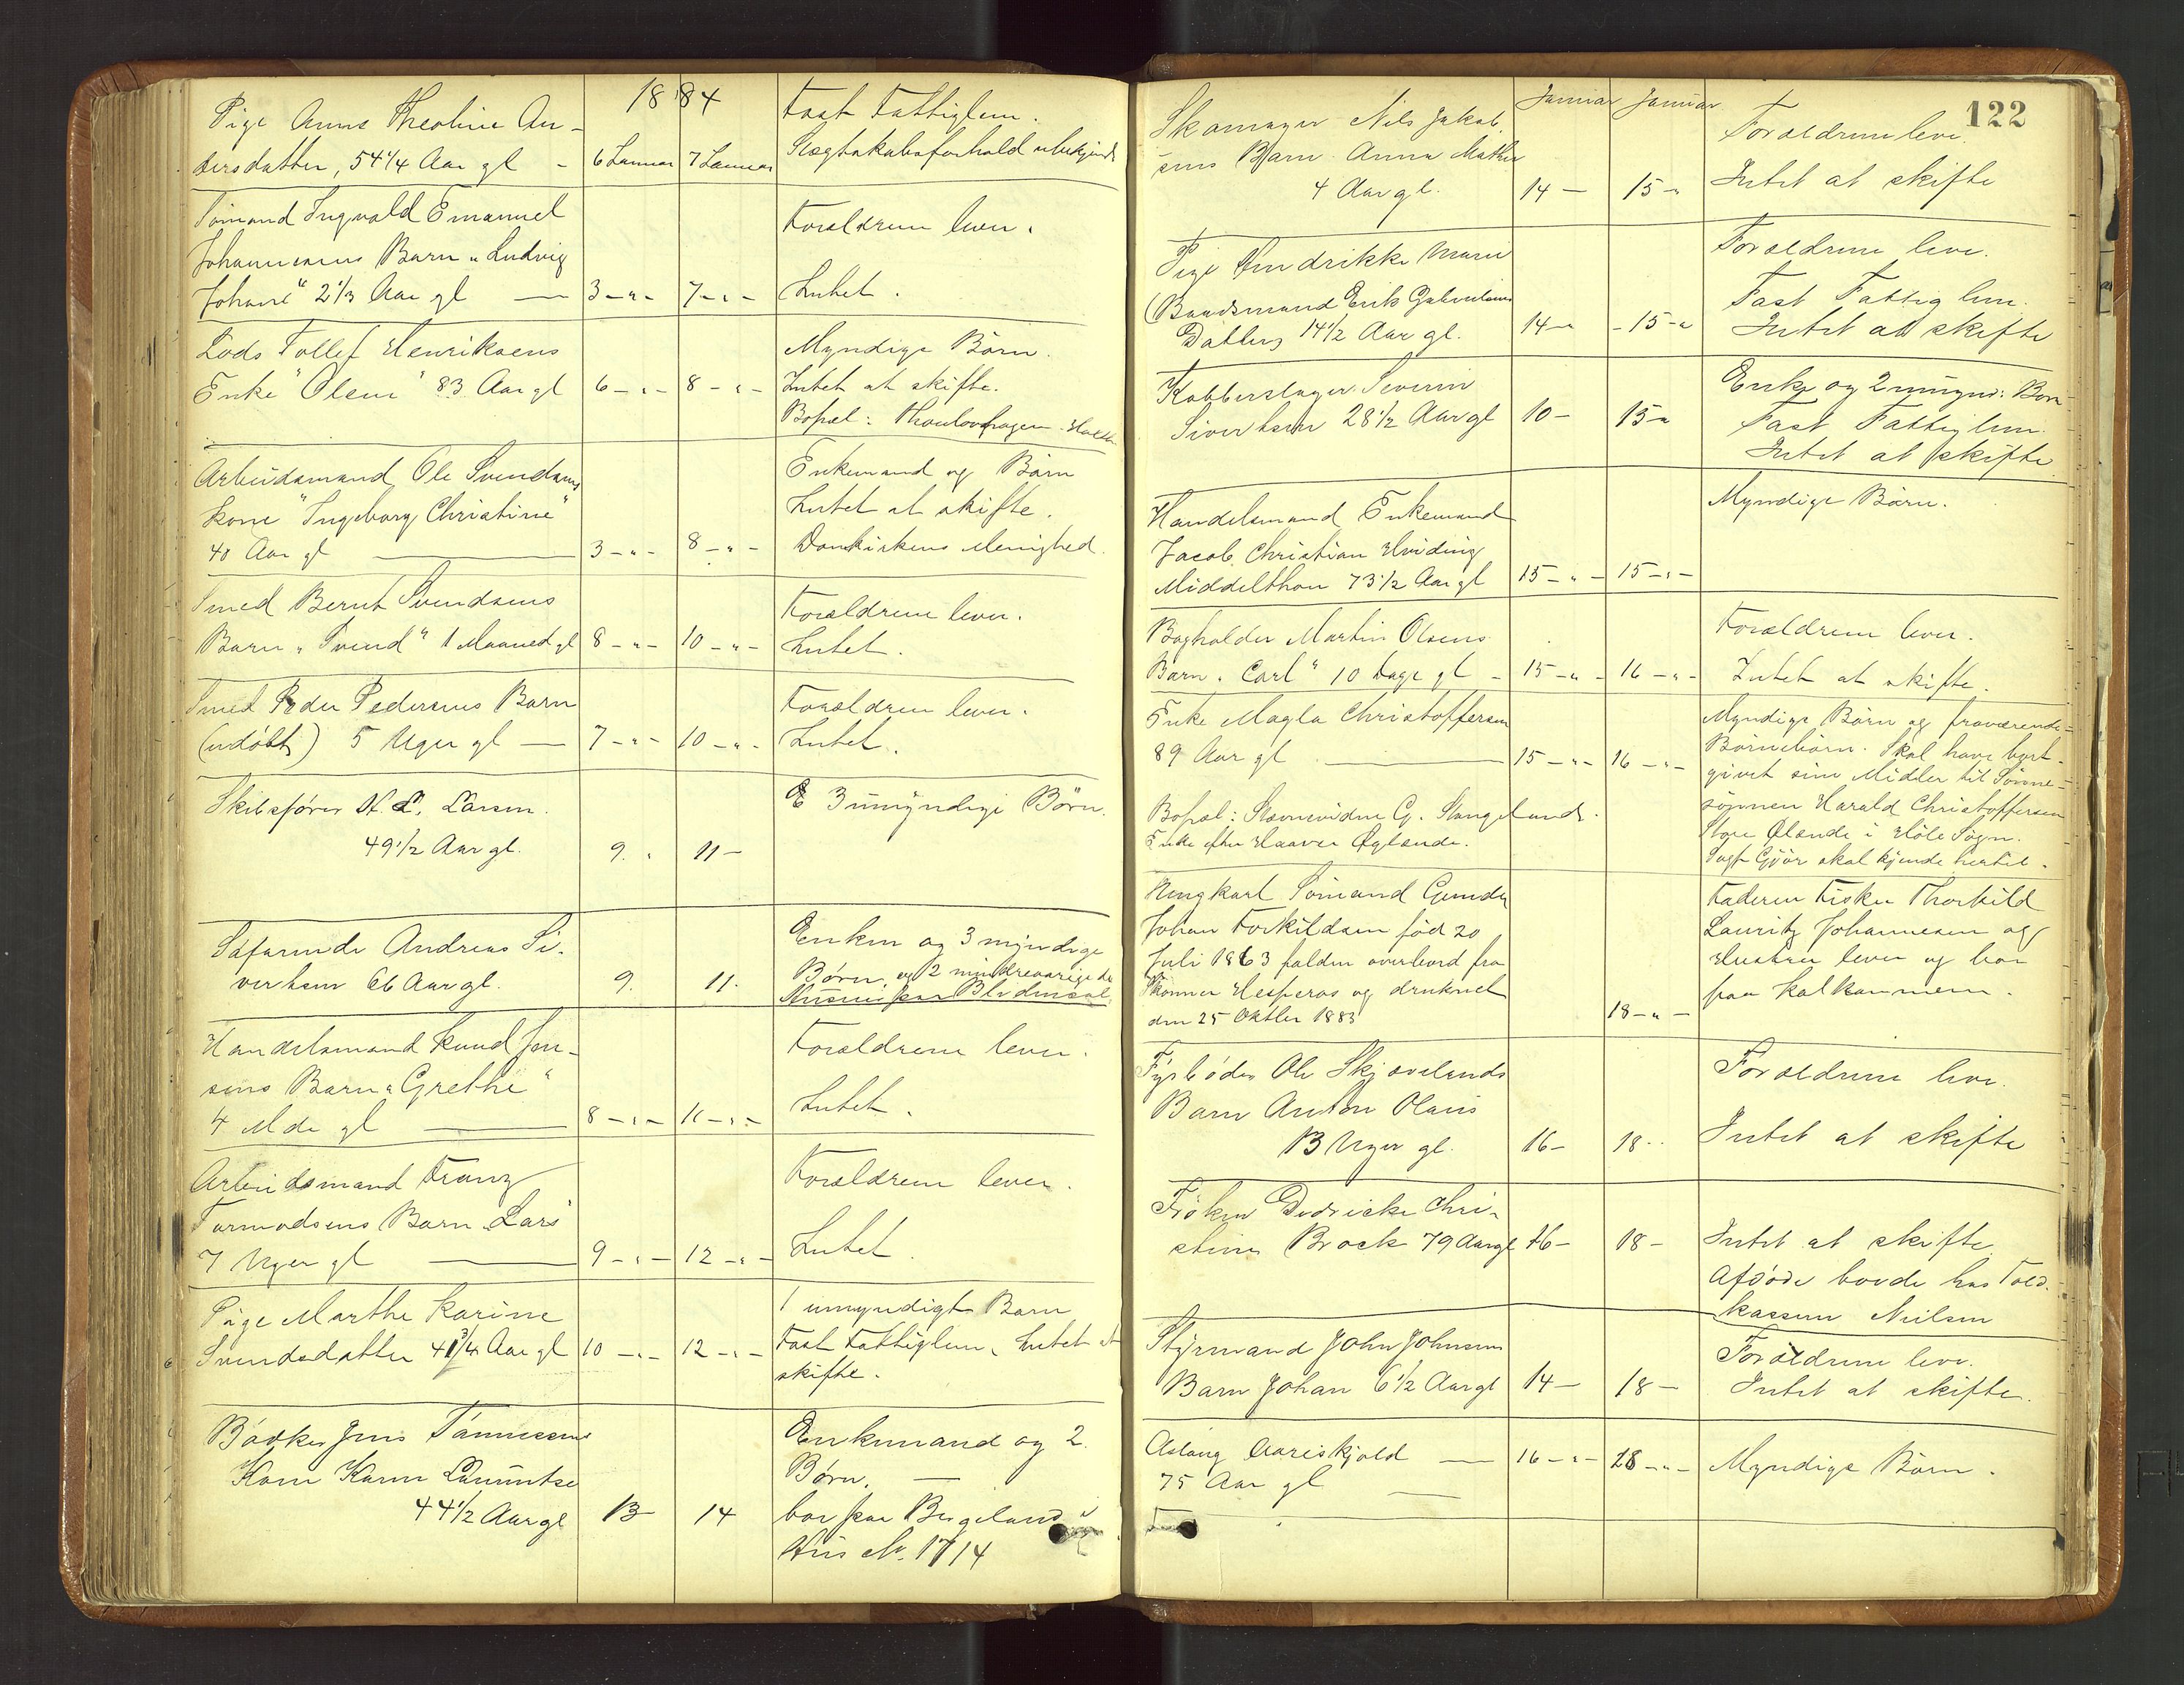 1884
Pige Anne Theoline An-
dersdatter, 54 1/4 Aar gl - 6 Januar 7 Januar
Fast Fattiglem.
Slægtskabsforhold ubekjendt
Sömand Ingvald Emanuel
Johannesens Barn „Ludvig
Johan" 2 1/3 Aar gl — 3 - „ - 7 - „ -
Forældrene lever.
Intet.
Lods Tollef Henriksens
Enke "Olene" 83 Aar gl 6 - „ - 8 - „ -
Myndige Börn.
Intet at skifte.
Bopæl:
Arbeidsmand Ole Svendsens
Kone "Ingeborg Christine"
40 Aar gl — 3 - „ - 8 - „ -
Enkemand og Börn
Intet at skifte.
Domkirkens Menighed.
Smed Bernt Svendsens
Barn „Svend" 1 Maaned gl 8 - „ - 10 - „ -
Forældrene lever.
Intet.
Smed Peder Pedersens Barn
(udöbt) 5 Uger gl — 7 - „ - 10 - „ -
Forældrene lever.
Intet.
Skibsfører Larsen.
49 1/2 Aar gl. 9. 11 -
3 umyndige Börn.
Søfarende Andreas Si-
vertsen 66 Aar gl. 9. 11.
Enken og 3 myndige
Börn, og 2 mindreaarige
Handelsmand Knud Jen-
sens Barn „Grethe"
4 Mdr gl — 8 - „ - 11 - „ -
Forældrene lever.
Intet.
Arbeidsmand Franz
Tormodsens Barn „Lars"
7 Uger gl — 9 - „ - 12 - „ -
Forældrene lever.
Intet.
Pige Marthe Karine
Svendsdatter 41 3/4 Aar gl 10 - „ - 12 - „ -
1 umyndigt Barn
Fast Fattiglem. Intet at
skifte.
Bødker Jens Tønnessens
Kone Karen
44 1/2 Aar gl 13 14
Enkemand og 2
Børn. —
bor paa Bergeland i
Hus No. 1714
122
Januar Januar
Skomager Nils Jakob-
sens Barn Anna Mathe
4 Aar gl. 14 - 15 - „
Forældrene leve.
Intet at skifte
Pige Hendrikke Marie
(Baadsmand Erik Gabrielsens
Datter) 14 1/2 Aar gl. 14 - „ - 15 - „
Forældrene leve.
Fast Fattiglem.
Intet at skifte
Kobberslager Severin
Sivertsen 28 1/2 Aar gl 10 - 15 - „
Enke og 2 umynd: Børn
Fast Fattiglem.
Intet at skifte
Handelsmand Enkemand
Jacob Christian Hviding
Middelthon 73 1/2 Aar gl 15 - „ - 15 - „ -
Myndige Börn.
Bogholder Martin Olsens
Barn „Carl" 10 Dage gl - 15 - „ - 16 - „ -
Forældrene lever.
Intet at skifte.
Enke Magla Christoffersen
89 Aar gl — 15 - „ - 16 - „ -
Bopæl: G. Stangelands.
Enke efter Haaver Øglænde.
Myndige Börn og fraværende
Börnebörn. Skal have bort-
givet sine Midler til Sönne-
sönnen Harald Christoffersen
Store Ølænde i Höle Sogn.
skal kjende hertil.
Ungkarl Sömand Gunder
Johan Torkildsen föd 20
Juli 1863 falden overbord fra
Skonner Hesperos og druknet
den 25 Oktber 1883
18 - „ -
Faderen Fisker Thorkild
Lauritz Johannesen og
Hustru lever og bor
paa Kalhammeren.
Fyrböder Ole Skjævelands
Barn Anton Olaus
13 Uger gl. 16 - 18 - -
Forældrene leve.
Intet at skifte
Fröken Dedricke Chri-
stine Brock 79 Aar gl 16 - 18 -
Intet at skifte.
Afdöde boede hos Told-
kasserer Nielsen
Styrmand John Johnsens
Barn Johan 6 1/2 Aar gl 14 - 18 -
Forældrene leve.
Intet at skifte.
Aslaug Aareskjold — 16 - „ - 18 - „ -
75 Aar gl —
Myndige Börn.